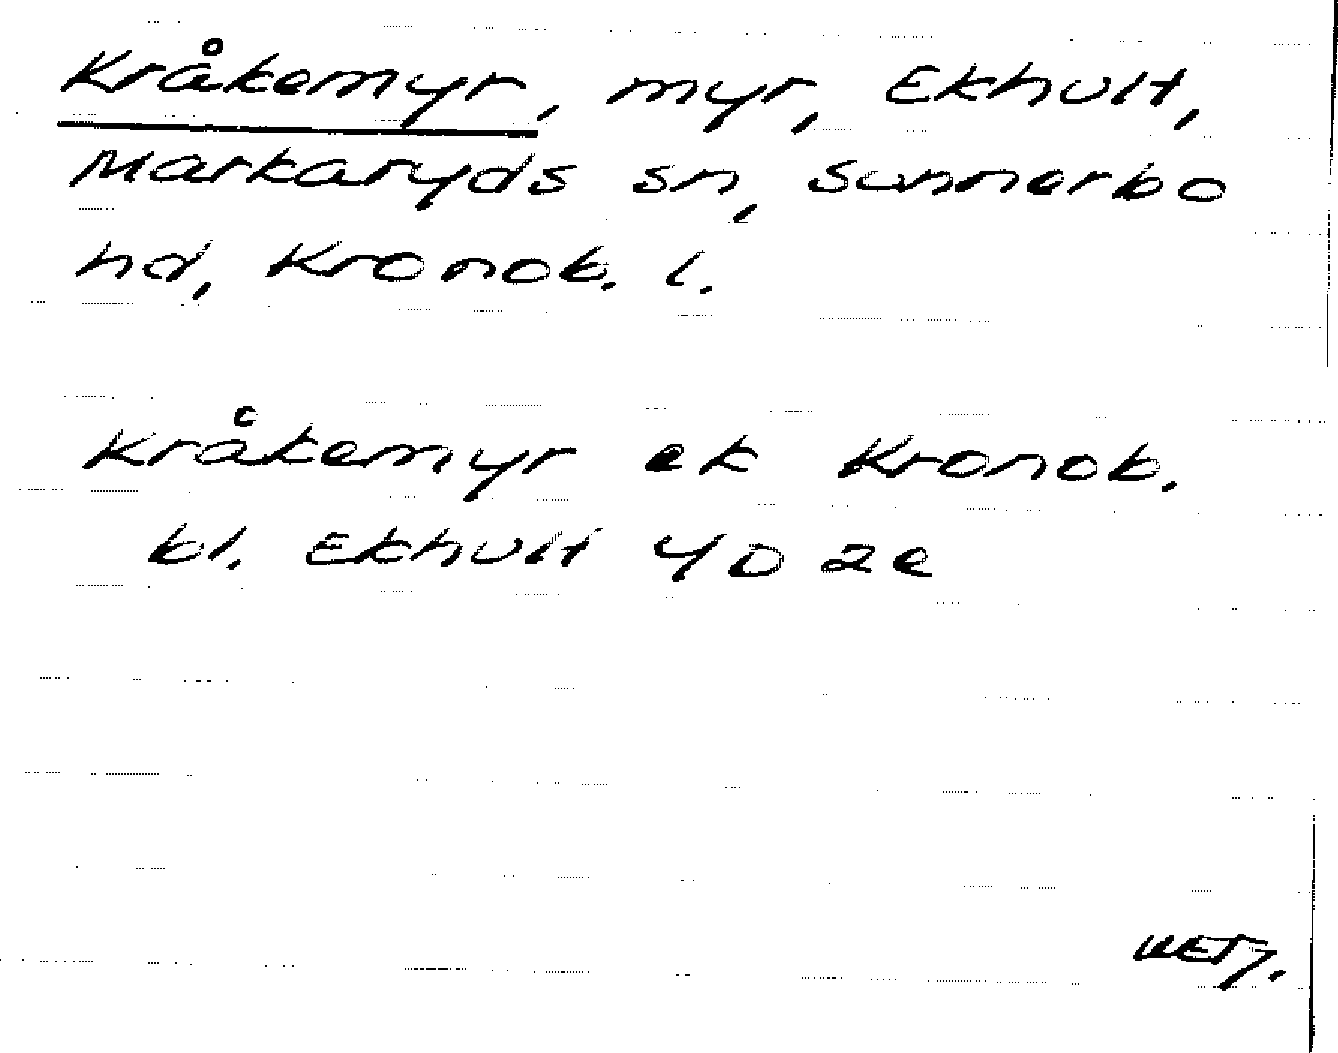 Kråkemyr, myr, Ekhult,
Markaryds sn, Sunnerbo
hd, Kronob. l.
Kråkemyr ek Kronob.
bl. Ekhult 4D 2e